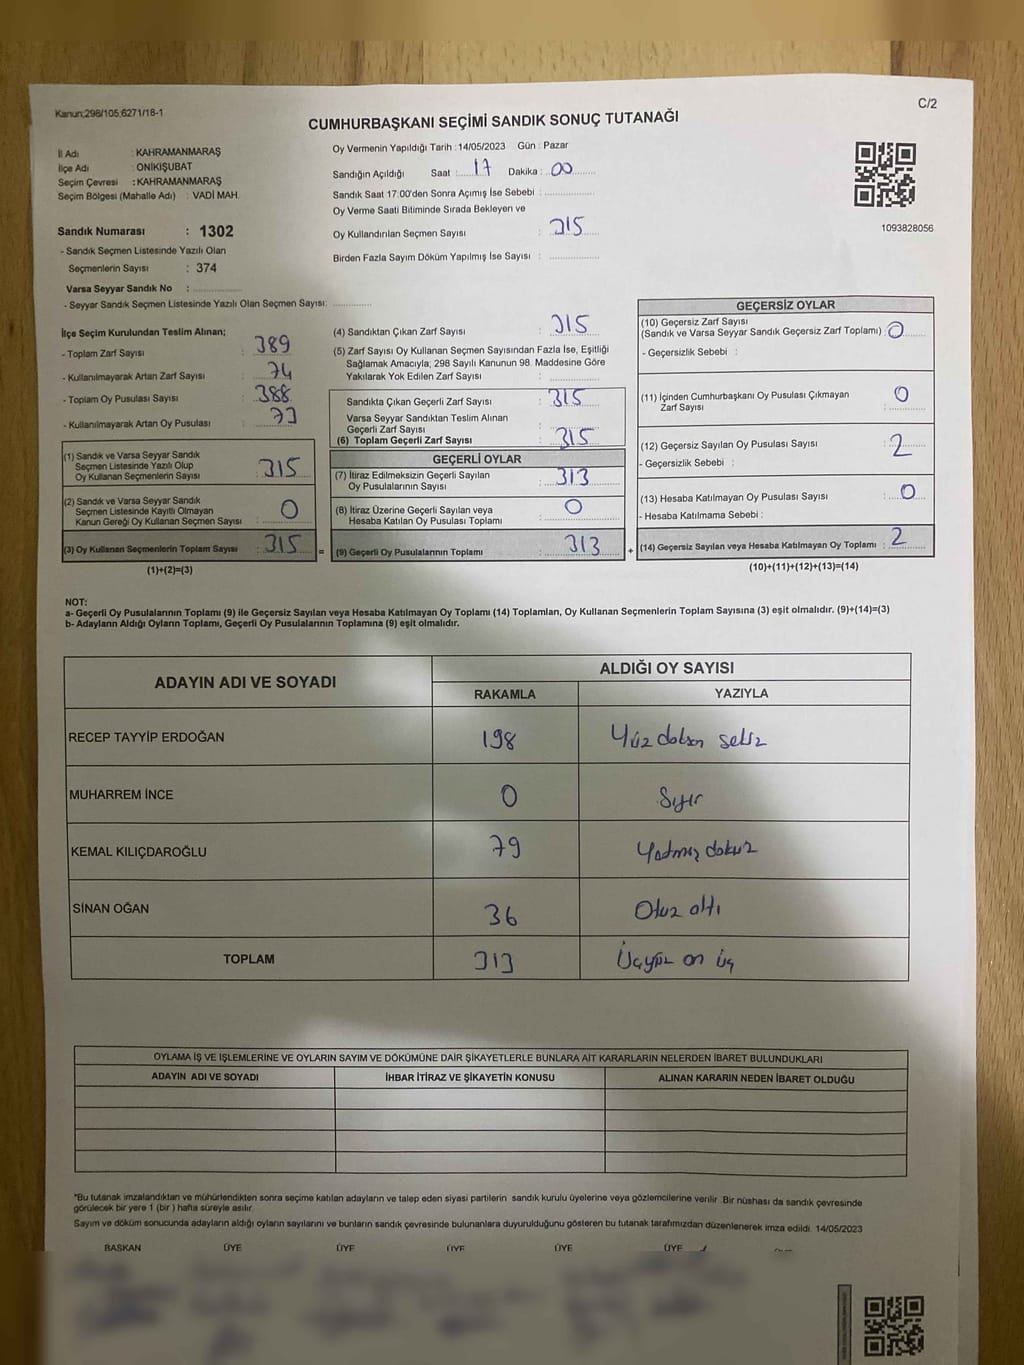 Kanun;298/105;6271/18-1
C/2
CUMHURBAŞKANI SEÇİMİ SANDIK SONUÇ TUTANAĞI
İl Adı : KAHRAMANMARAŞ
İlçe Adı : ONİKİŞUBAT
Seçim Çevresi : KAHRAMANMARAŞ
Seçim Bölgesi (Mahalle Adı) : VADİ MAH.
Sandık Numarası : 1302
- Sandık Seçmen Listesinde Yazılı Olan
Seçmenlerin Sayısı : 374
Varsa Seyyar Sandık No :
- Seyyar Sandık Seçmen Listesinde Yazılı Olan Seçmen Sayısı:
Oy Vermenin Yapıldığı Tarih :14/05/2023 Gün : Pazar
Sandığın Açıldığı Saat : 17 Dakika : 00
Sandık Saat 17:00'den Sonra Açımış İse Sebebi :
Oy Verme Saati Bitiminde Sırada Bekleyen ve
Oy Kullandırılan Seçmen Sayısı : 315
Birden Fazla Sayım Döküm Yapılmış İse Sayısı :
1093828056
İlçe Seçim Kurulundan Teslim Alınan;
- Toplam Zarf Sayısı : 389
- Kullanılmayarak Artan Zarf Sayısı : 74
- Toplam Oy Pusulası Sayısı : 388
- Kullanılmayarak Artan Oy Pusulası : 73
(1) Sandık ve Varsa Seyyar Sandık
Seçmen Listesinde Yazılı Olup
Oy Kullanan Seçmenlerin Sayısı : 315
(2) Sandık ve Varsa Seyyar Sandık
Seçmen Listesinde Kayıtlı Olmayan
Kanun Gereği Oy Kullanan Seçmen Sayısı : 0
(3) Oy Kullanan Seçmenlerin Toplam Sayısı : 315
(1)+(2)=(3)
(4) Sandıktan Çıkan Zarf Sayısı : 315
(5) Zarf Sayısı Oy Kullanan Seçmen Sayısından Fazla İse, Eşitliği
Sağlamak Amacıyla; 298 Sayılı Kanunun 98. Maddesine Göre
Yakılarak Yok Edilen Zarf Sayısı :
Sandıkta Çıkan Geçerli Zarf Sayısı : 315
Varsa Seyyar Sandıktan Teslim Alınan
Geçerli Zarf Sayısı :
(6) Toplam Geçerli Zarf Sayısı : 315
GEÇERLİ OYLAR
(7) İtiraz Edilmeksizin Geçerli Sayılan
Oy Pusulalarının Sayısı : 313
(8) İtiraz Üzerine Geçerli Sayılan veya
Hesaba Katılan Oy Pusulası Toplamı : 0
= (9) Geçerli Oy Pusulalarının Toplamı : 313
GEÇERSİZ OYLAR
(10) Geçersiz Zarf Sayısı
(Sandık ve Varsa Seyyar Sandık Geçersiz Zarf Toplamı) : 0
- Geçersizlik Sebebi :
(11) İçinden Cumhurbaşkanı Oy Pusulası Çıkmayan
Zarf Sayısı : 0
(12) Geçersiz Sayılan Oy Pusulası Sayısı : 2
- Geçersizlik Sebebi :
(13) Hesaba Katılmayan Oy Pusulası Sayısı : 0
- Hesaba Katılmama Sebebi :
+ (14) Geçersiz Sayılan veya Hesaba Katılmayan Oy Toplamı : 2
(10)+(11)+(12)+(13)=(14)
NOT:
a- Geçerli Oy Pusulalarının Toplamı (9) ile Geçersiz Sayılan veya Hesaba Katılmayan Oy Toplamı (14) Toplamları, Oy Kullanan Seçmenlerin Toplam Sayısına (3) eşit olmalıdır. (9)+(14)=(3)
b- Adayların Aldığı Oyların Toplamı, Geçerli Oy Pusulalarının Toplamına (9) eşit olmalıdır.
ADAYIN ADI VE SOYADI
ALDIĞI OY SAYISI
RAKAMLA YAZIYLA
RECEP TAYYİP ERDOĞAN 198 Yüz doksan sekiz
MUHARREM İNCE 0 Sıfır
KEMAL KILIÇDAROĞLU 79 Yetmiş dokuz
SİNAN OĞAN 36 Otuz altı
TOPLAM 313 Üçyüz on üç
OYLAMA İŞ VE İŞLEMLERİNE VE OYLARIN SAYIM VE DÖKÜMÜNE DAİR ŞİKAYETLERLE BUNLARA AİT KARARLARIN NELERDEN İBARET BULUNDUKLARI
ADAYIN ADI VE SOYADI İHBAR İTİRAZ VE ŞİKAYETİN KONUSU ALINAN KARARIN NEDEN İBARET OLDUĞU
*Bu tutanak imzalandıktan ve mühürlendikten sonra seçime katılan adayların ve talep eden siyasi partilerin sandık kurulu üyelerine veya gözlemcilerine verilir. Bir nüshası da sandık çevresinde
görülecek bir yere 1 (bir) hafta süreyle asılır.
Sayım ve döküm sonucunda adayların aldığı oyların sayılarını ve bunların sandık çevresinde bulunanlara duyurulduğunu gösteren bu tutanak tarafımızdan düzenlenerek imza edildi. 14/05/2023
BAŞKAN ÜYE ÜYE ÜYE ÜYE ÜYE